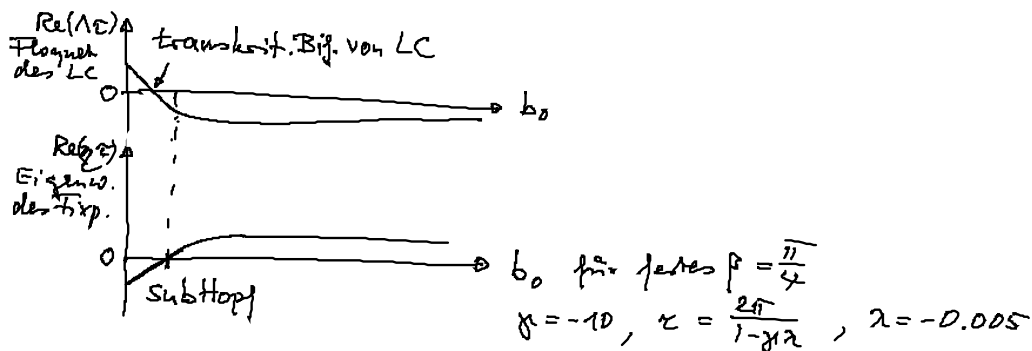 Re(Λτ)
Floquet
des LC
transkrit. Bif. von LC
0
b₀
Re(ητ)
Eigenw.
des Fixp.
0
b₀ für festes β = π/4
subHopf
γ = -10, τ = 2π/(1-γλ), λ = -0.005